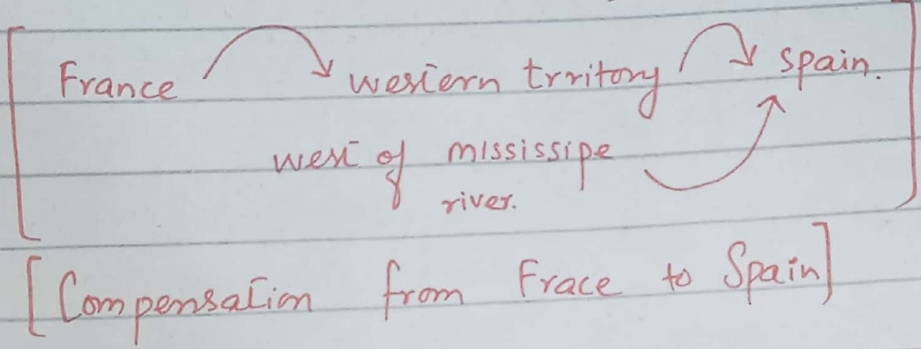 France western trritory spain.
west of mississipe
river.
[Compensation from Frace to Spain]